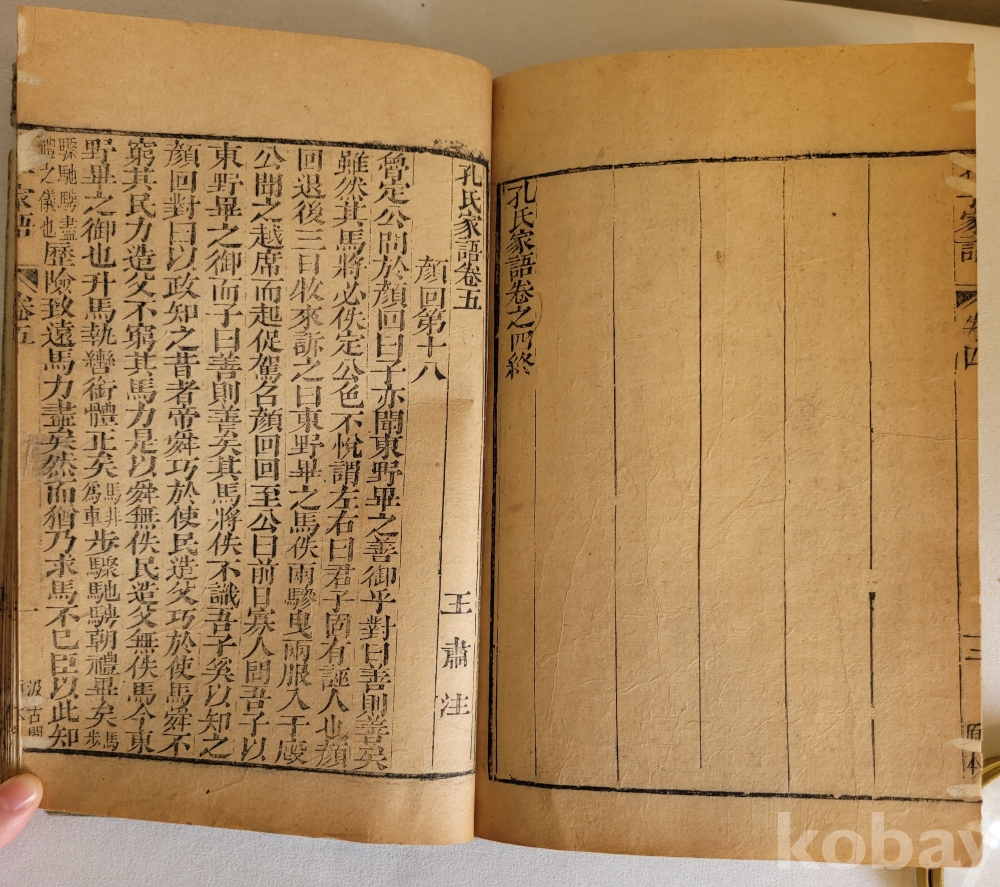 家語
卷四
三
原本
孔氏家語卷之四終
孔氏家語卷五
顏回第十八　王肅注
魯定公問於顏回曰子亦聞東野畢之善御乎對曰善則善矣
雖然其馬將必佚定公色不悅謂左右曰君子固有誣人也顏
回退後三日牧來訴之曰東野畢之馬佚兩驂曳兩服入于廄
公聞之越席而起促駕召顏回回至公曰前日寡人問吾子以
東野畢之御而子曰善則善矣其馬將佚不識吾子奚以知之
顏回對曰以政知之昔者帝舜巧於使民造父巧於使馬舜不
窮其民力造父不窮其馬力是以舜無佚民造父無佚馬今東
野畢之御也升馬執轡銜體正矣馬非爲車步驟馳騁朝禮畢矣馬步
驟馳騁盡禮之儀也歷險致遠馬力盡矣然而猶乃求馬不已臣以此知
家語
卷五
一
汲古閣
kobay